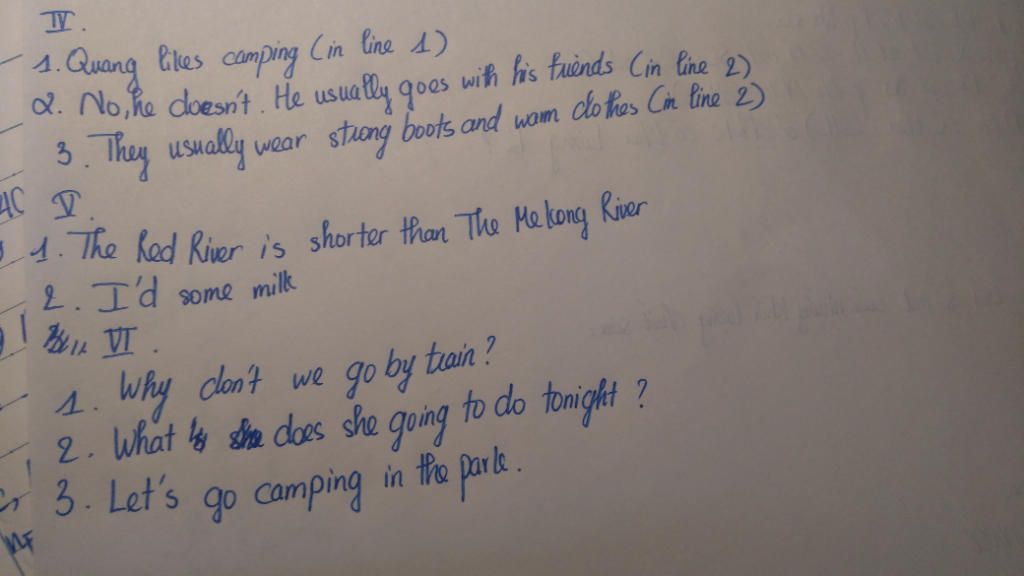 IV.
1. Quang likes camping (in line 1)
2. No, he doesn't. He usually goes with his friends (in line 2)
3. They usually wear strong boots and warm clothes (in line 2)
V.
1. The Red River is shorter than The Mekong River
2. I'd some milk
VI.
1. Why don't we go by train?
2. What does she going to do tonight?
3. Let's go camping in the park.